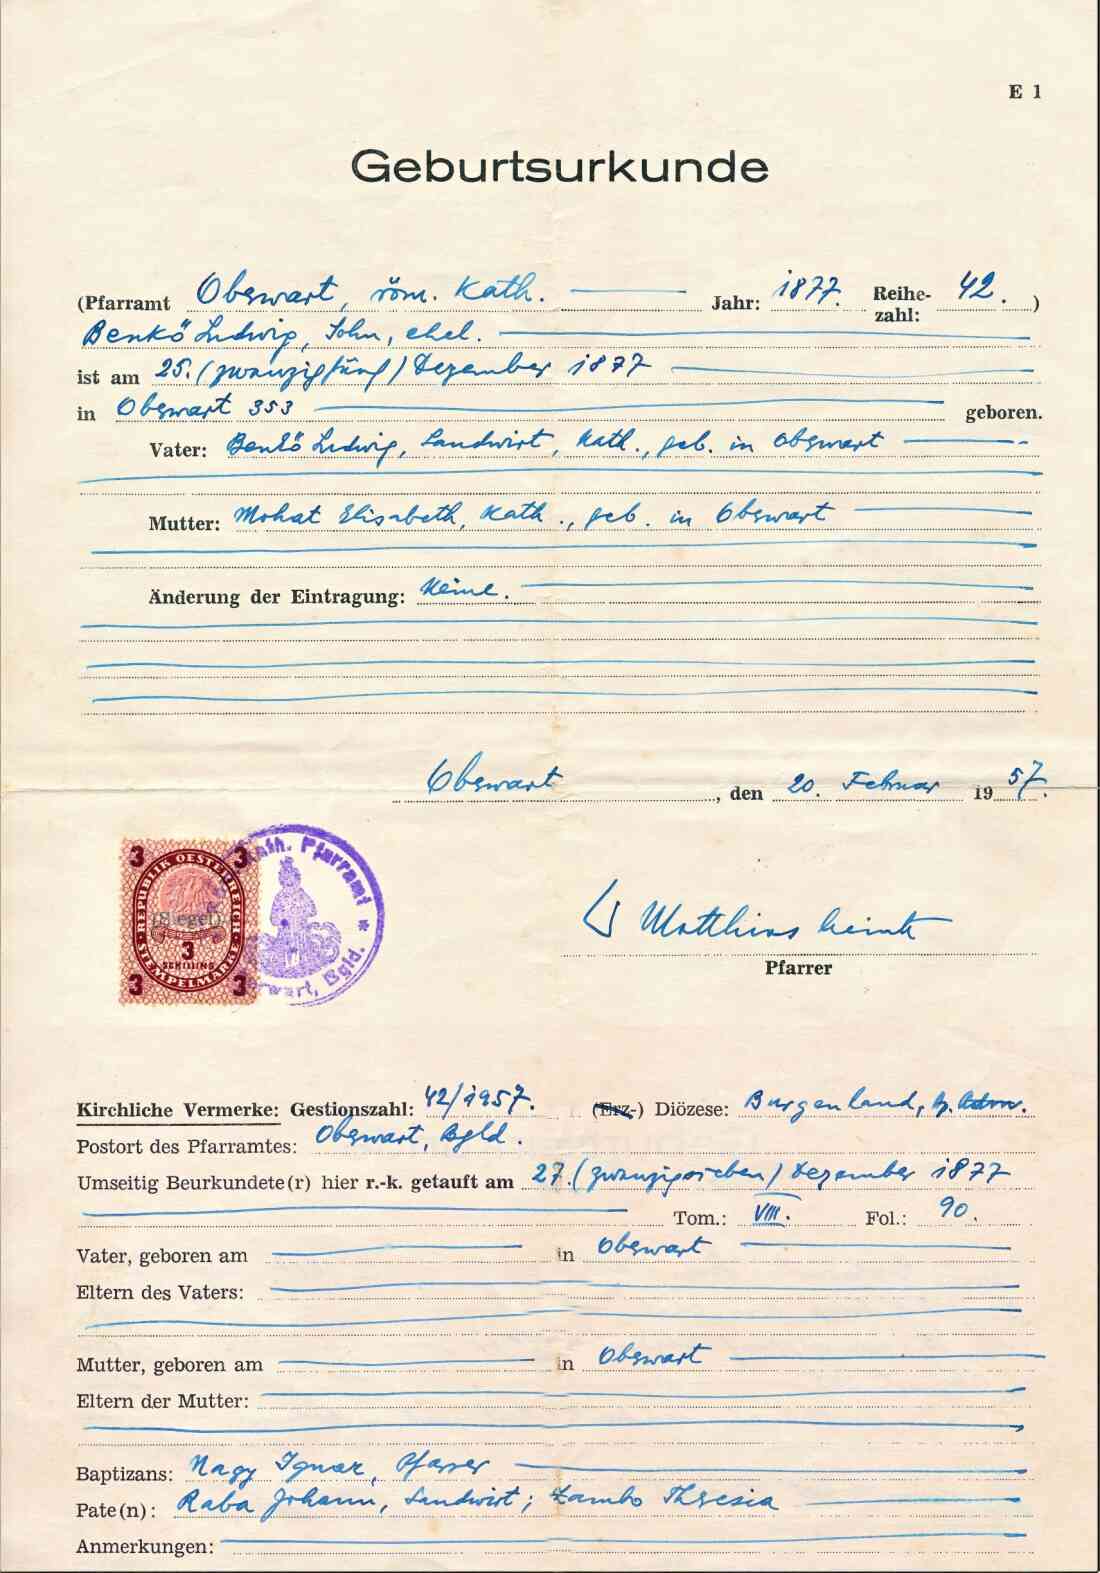 E 1
Geburtsurkunde
(Pfarramt Oberwart, röm. Kath. Jahr: 1877. Reihe-zahl: 42.)
Benkö Ludwig, Sohn, ehel.
ist am 25. (zwanzigfünf) Dezember 1877
in Oberwart 353 geboren.
Vater: Benkö Ludwig, Landwirt, kath., geb. in Oberwart
Mutter: Mohat Elisabeth, kath., geb. in Oberwart
Änderung der Eintragung: Keine.
Oberwart, den 20. Februar 1957.
3 3
REPUBLIK OESTERREICH
(Siegel)
3
SCHILLING
STEMPELMARKE
3 3
Kath. Pfarramt * Oberwart, Bgld.
Matthias
Pfarrer
Kirchliche Vermerke: Gestionszahl: 42/1957. (Erz-) Diözese: Burgenland, Ap. Adm.
Postort des Pfarramtes: Oberwart, Bgld.
Umseitig Beurkundete(r) hier r.-k. getauft am 27. (zwanzigsieben) Dezember 1877
Tom.: VIII. Fol.: 90.
Vater, geboren am in Oberwart
Eltern des Vaters:
Mutter, geboren am in Oberwart
Eltern der Mutter:
Baptizans: Nagy Ignaz, Pfarrer
Pate(n): Raba Johann, Landwirt; Zambo Theresia
Anmerkungen: